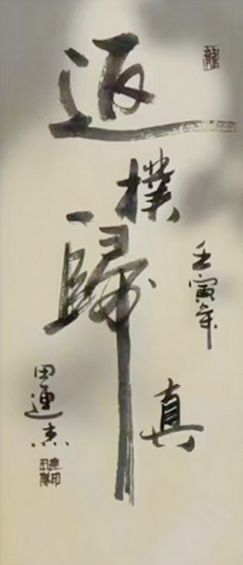 返
撲
歸
真
壬寅年
田運杰